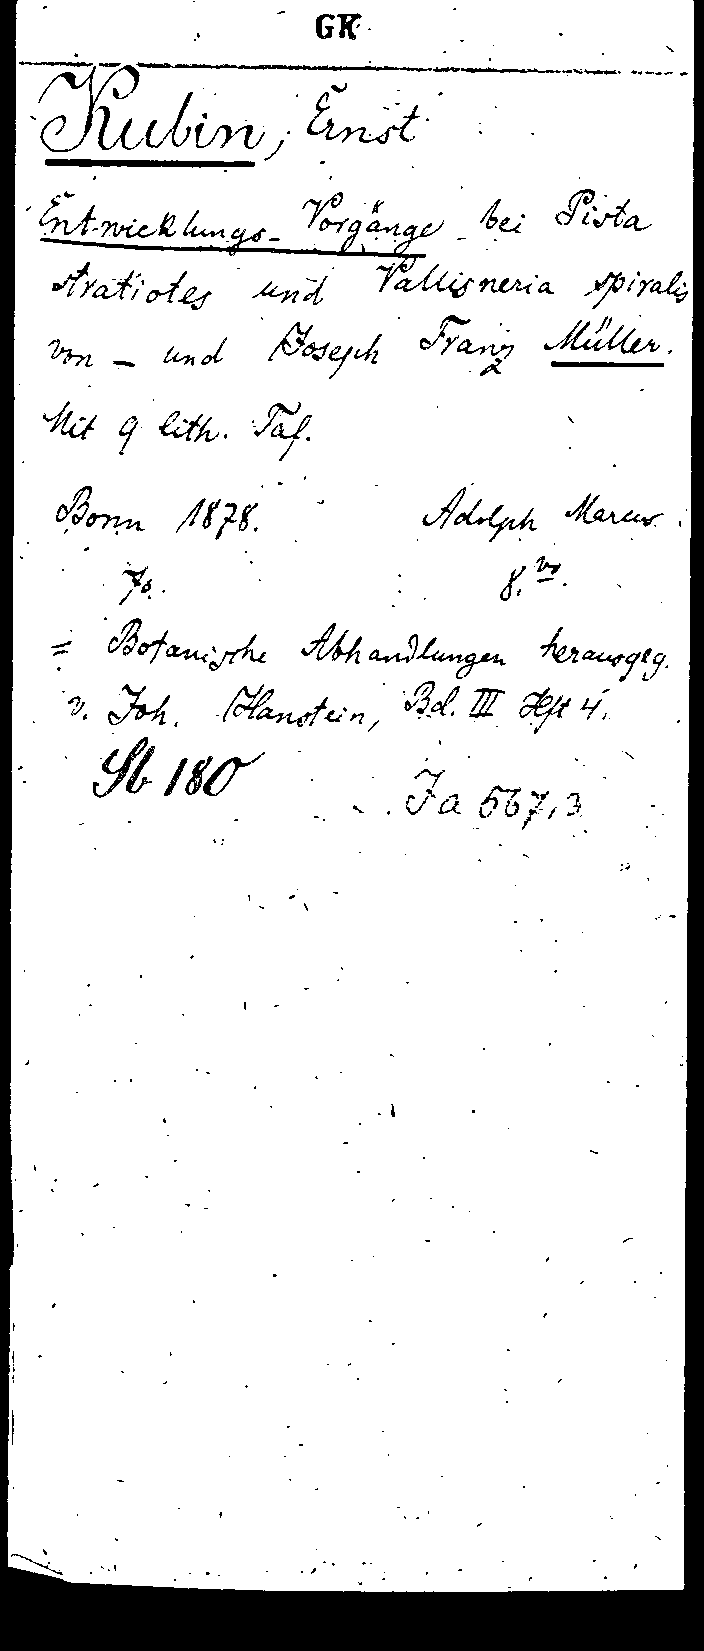 GK
Kubin, Ernst
Entwicklungs-Vorgänge bei Pista
stratiotes und Vallisneria spiralis
von – und Joseph Franz Müller.
Mit 9 lith. Taf.
Bonn 1878. Adolph Marcus.
70. 8.vo.
= Botanische Abhandlungen herausgeg.
v. Joh. Hanstein, Bd. III Hft 4.
Sb 180
Ja 567,3